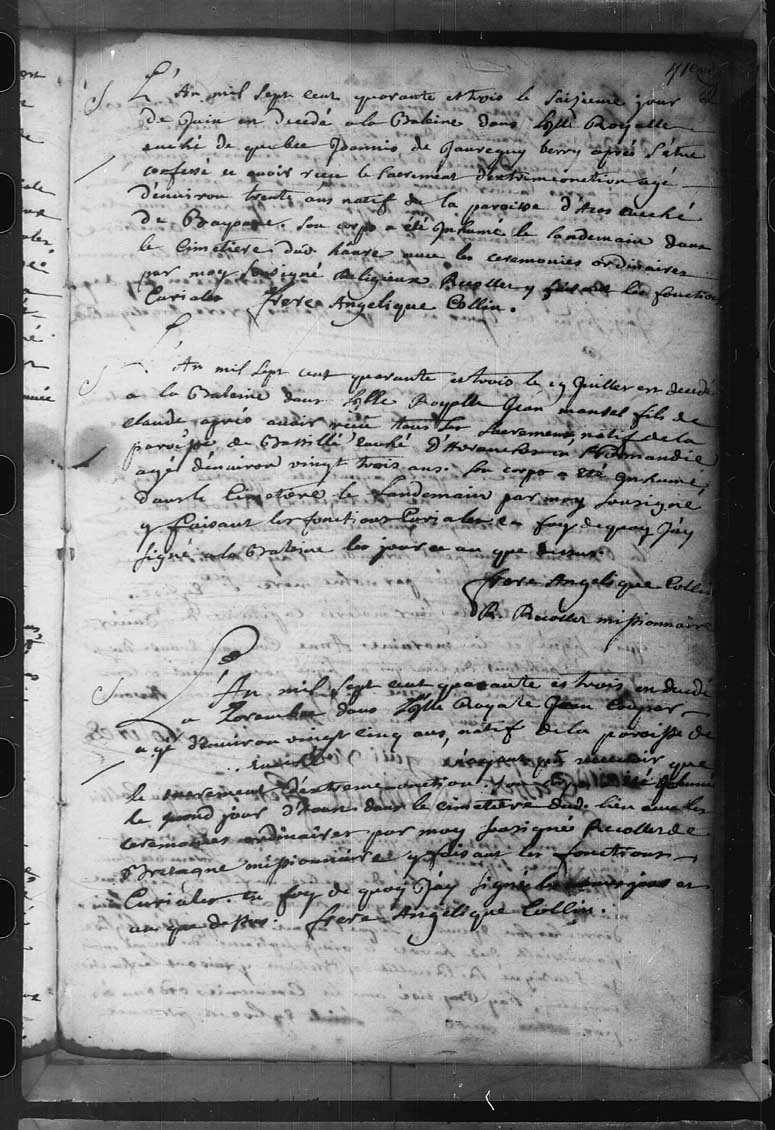 L'An mil sept cent quarante et trois le saizieme jour
de Juin en decedé a la Baleine dans l'ylle Royalle
euché de quebec Joannis de Jaureguy berry après s'être
confessé et avoir receu le sacrement d'extrimeonction agé
d'environ trente ans natif de la paroisse d'Acos euché
de Bayonne. Son corps a été Inhumé le landemain dans
le Cimetiere dud hâure avec les ceremonies ordinaires
par moy sousigné Religieux Recollet y faisant les fonctions
Curiales frere Angelique Collin.
L'An mil sept cent quarante et trois le 19 Juillet est decedé
a la Baleine dans l'ylle Royalle Jean mansel fils de
claude après avoir receu tous les sacremens natif de la
paroisse de Bassillé euché d'Avranches en Normandie
agé d'environ vingt trois ans. Son corps a été Inhumé
dans le Cimetere le Landemain par moy sousigné
y faisant les fonctions Curiales en foy de quoy J'ay
signé a la Baleine les jour et an que dessus.
frere Angelique Collin
R. Recollet missionnaire
L'An mil sept cent quarante et trois en decedé
a dans l'ylle Royale Jean
agé d'environ vingt cinq ans, natif de la paroisse de
n'ayant pû recevoir que
le sacrement d'extreme onction. Son corps a été Inhumé
le jour dans le cimetere dud. lieu avec les
ceremonies ordinaires par moy sousigné Recollet de
Bretagne missionnaire y faisant les fonctions
Curiales. en foy de quoy J'ay signé les jour et
an que dessus. frere Angelique Collin.